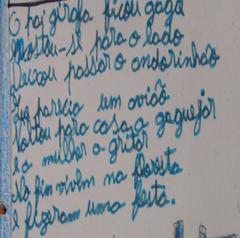 O pai girafa ficou gago
Mostou-se para o lado
Deixou passar o andorinhão
parecia um avião
Voltou para casa a gaguejar
e a mulher a gritar
No fim vivem na floresta
e fizeram uma festa.